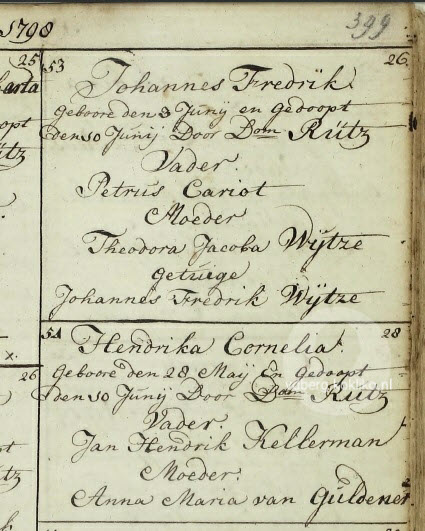 1798
399
25
26
53
Johannes Fredrik.
Geboore den 8 Junij en Gedoopt
den 10 Junij Door Dom Rütz
Vader.
Petrus Cariot
Moeder
Theodora Jacoba Wijtze
Getuige
Johannes Fredrik Wijtze
54
28
Hendrika Cornelia.
Geboore den 28 Maij En Gedoopt
den 10 Junij Door Dom Rütz
Vader.
Jan Hendrik Kellerman
Moeder.
Anna Maria van Guldener.
26
x.